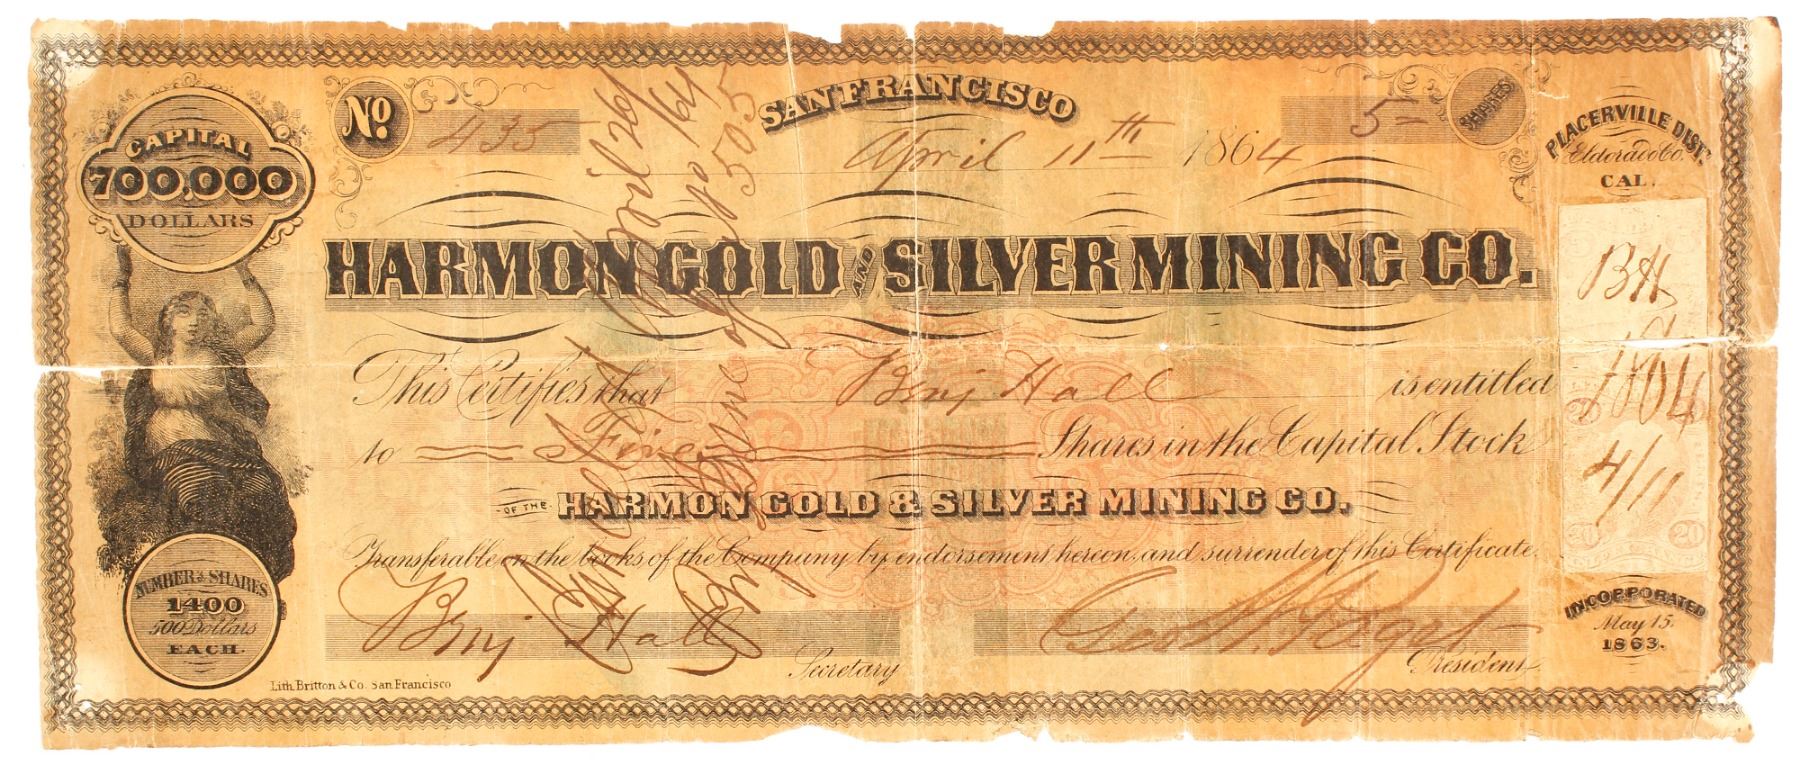 CAPITAL
700,000
DOLLARS
No. 435
SAN FRANCISCO
April 11th 1864
5 =
SHARES
PLACERVILLE DIST.
Eldorado Co.
CAL.
HARMON GOLD AND SILVER MINING CO.
This Certifies that Benj Hall is entitled
to Five Shares in the Capital Stock
OF THE HARMON GOLD & SILVER MINING CO.
Transferable on the books of the Company by endorsement hereon, and surrender of this Certificate.
Benj Hall
Secretary
President
NUMBER of SHARES
1400
500 Dollars
EACH.
Lith. Britton & Co. San Francisco
BH
1864
4/11
20 20
INCORPORATED
May 15.
1863.
April 26/64
505